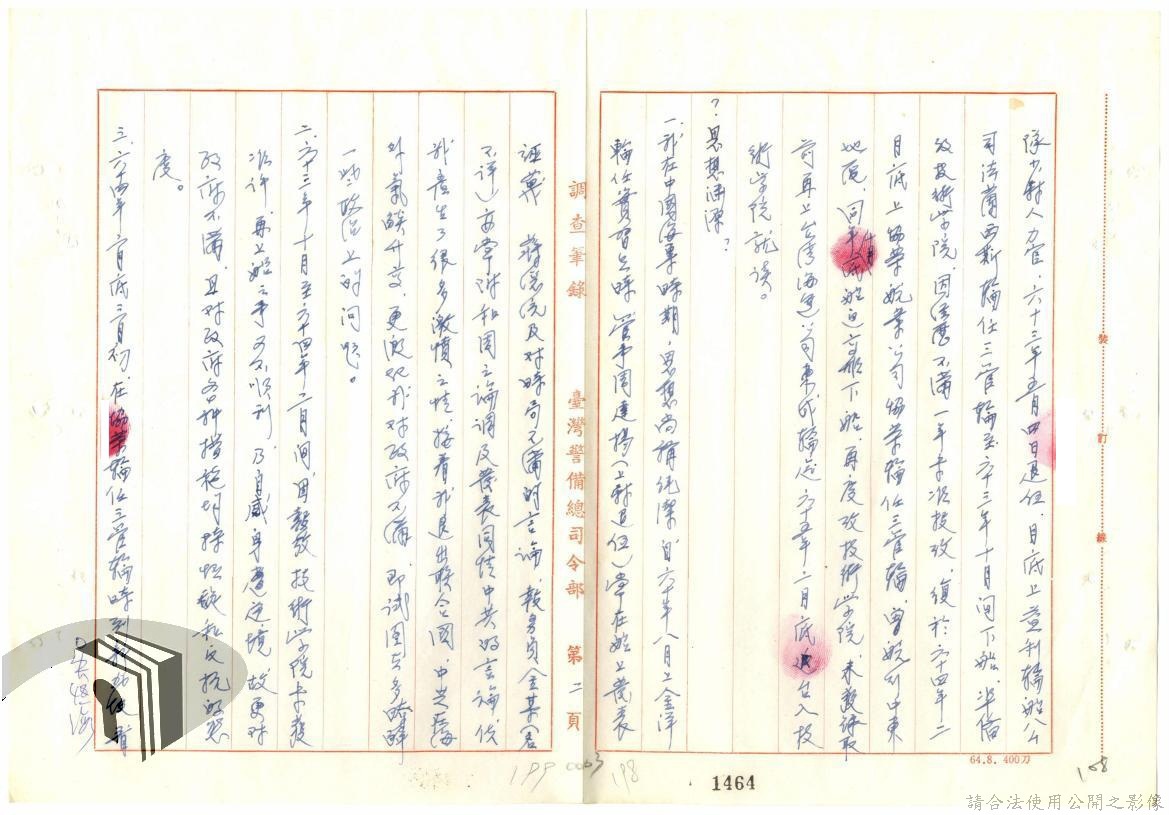 隊少尉人力官，六十三年五月四日退伍，月底上益利輪船公
司法蘭西斯輪任三管輪至六十三年十月間下船，準備
考技術學院，因經歷不滿一年未准投考，復於六十四年二
月底上協榮航業公司協榮輪任三管輪，曾航行中東
地區，同年十月船返高雄下船，再度考技術學院，未獲錄取
前再上台灣海運公司東成輪迄六十五年二月底進入技
術學院就讀。
？思想淵源？
一、我在中國海專時期，思想尚稱純潔，自六十年八月上金洋
輪任實習生時，管事周達揚（上尉退伍）常在船上發表
誣衊　蔣總統及對時局不滿的言論，報務員金某（名
不詳）亦常附和周之論調及發表同情中共的言論，使
我產生了很多激憤之情，接著我退出聯合國，中共在海
外氣燄升高，更激起我對政府不滿，即試圖去多瞭解
一些政治上的問題。
二、六十三年十月至六十四年二月間，因報考技術學院未獲
准許，再上船之事又不順利，乃自感身處逆境，故更對
政府不滿，且對政府各種措施均採懷疑和反抗的態
度。
三、六十四年二月底三月初，在協榮輪任三管輪時到
調查筆錄
臺灣警備總司令部
第二頁
裝
訂
線
64.8. 400刀
199 0063
198
1464
168
請合法使用公開之影像